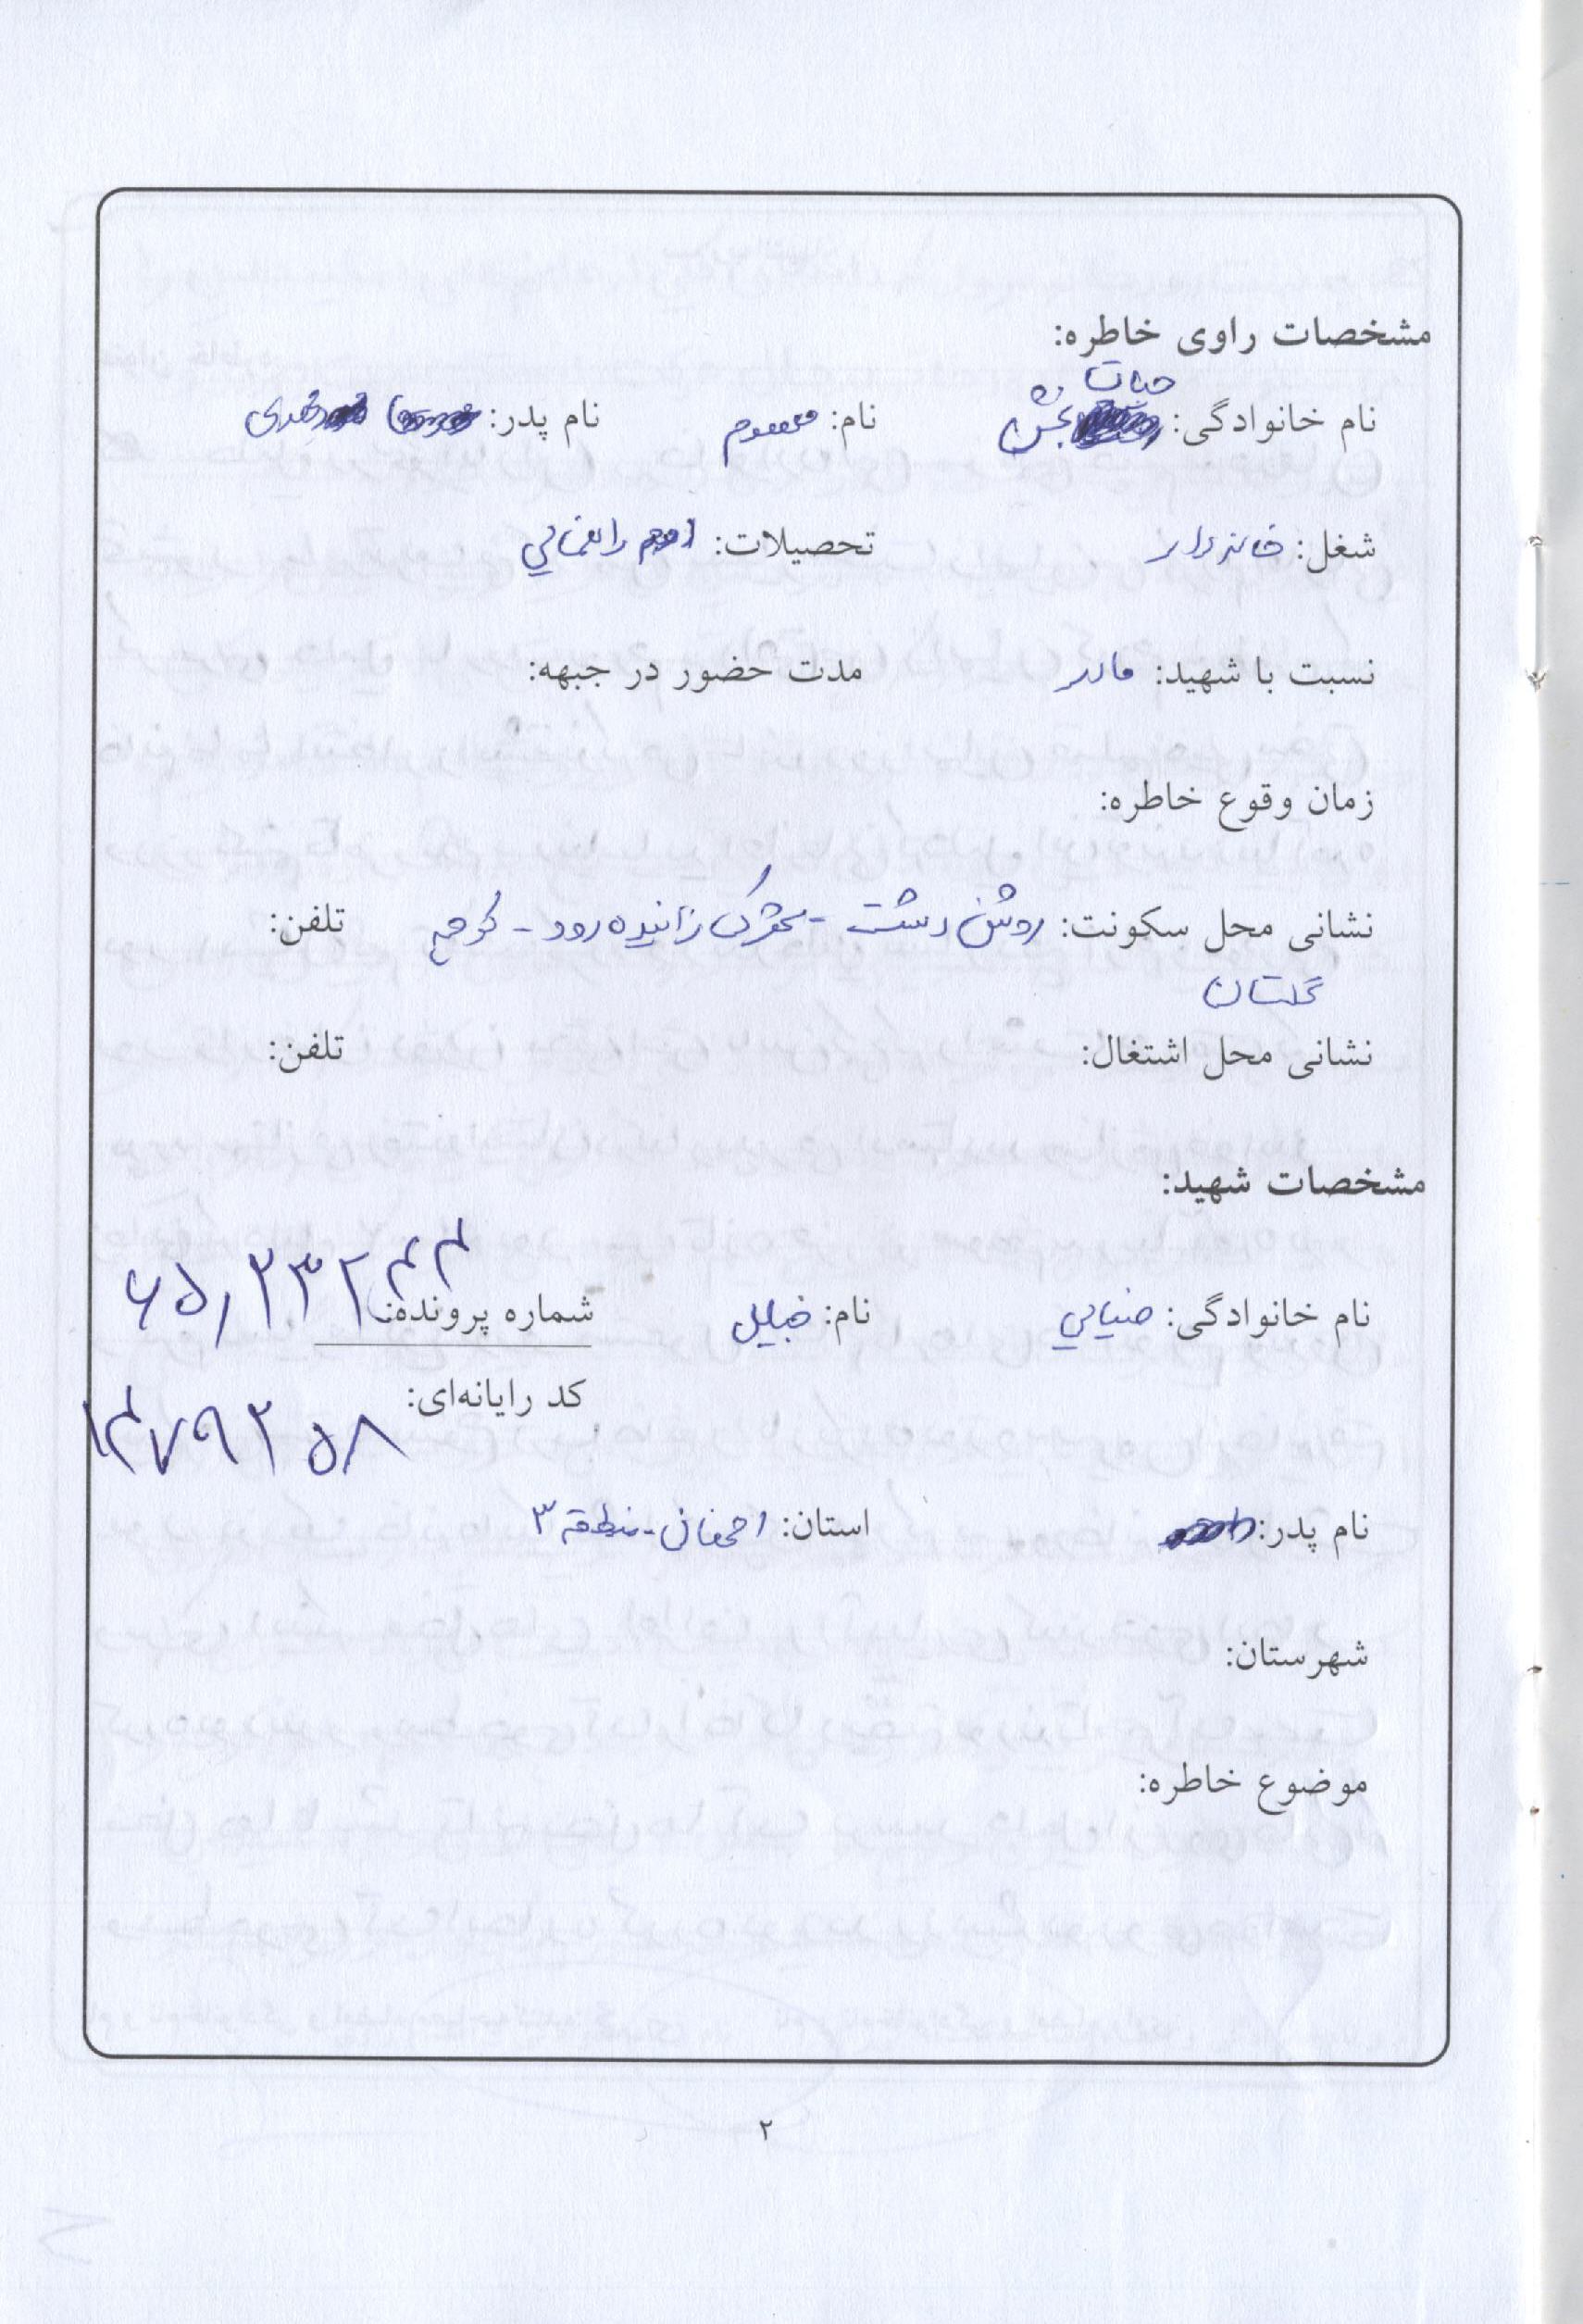 مشخصات راوی خاطره:
حیات
نام خانوادگی: بخش نام: معصوم نام پدر: مهدی
شغل: خانه‌دار تحصیلات: راهنمائی
نسبت با شهید: مادر مدت حضور در جبهه:
زمان وقوع خاطره:
نشانی محل سکونت: روشن دشت - شهرک زاینده رود - کوچه تلفن:
گلستان
نشانی محل اشتغال: تلفن:
مشخصات شهید:
نام خانوادگی: ضیایی نام: خلیل شماره پرونده:
کد رایانه‌ای: ۱۴۷۹۲۵۸
نام پدر: استان: اصفهان - منطقه ۳
شهرستان:
موضوع خاطره:
۲